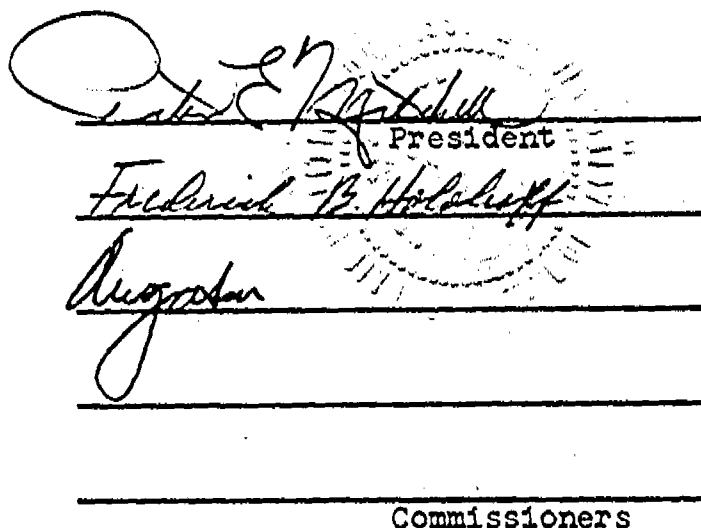 E. Mitchell
President
Frederick B. Holoboff
Commissioners